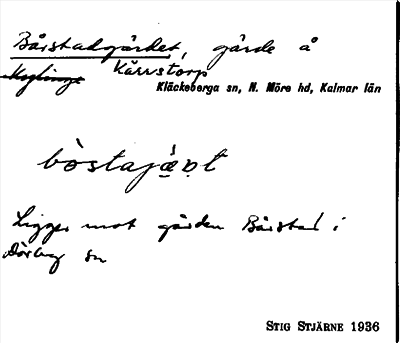 Bårstadgärdet, gärde å
Kyllinge Kärrstorp
Kläckeberga sn, N. Möre hd, Kalmar län
bòstajæ̀ṇt
Ligger mot gården Bårstad i
Dörby sn
STIG STJÄRNE 1936